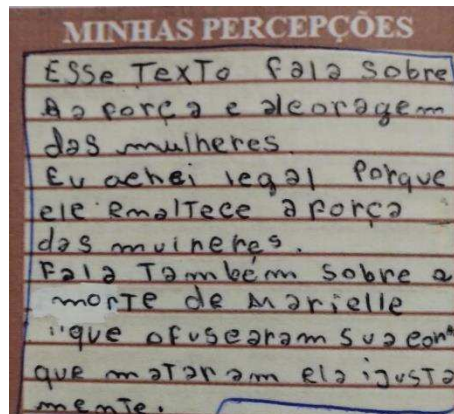 MINHAS PERCEPÇÕES
ESSe TexTo Fala sobre
a força e a coragem
das mulheres.
Eu achei legal Porque
ele emalTece a Força
das mulheres.
Fala Também sobre a
morTe de Marielle
"que ofuscaram sua
que maTaram ela ijusTa
menTe.